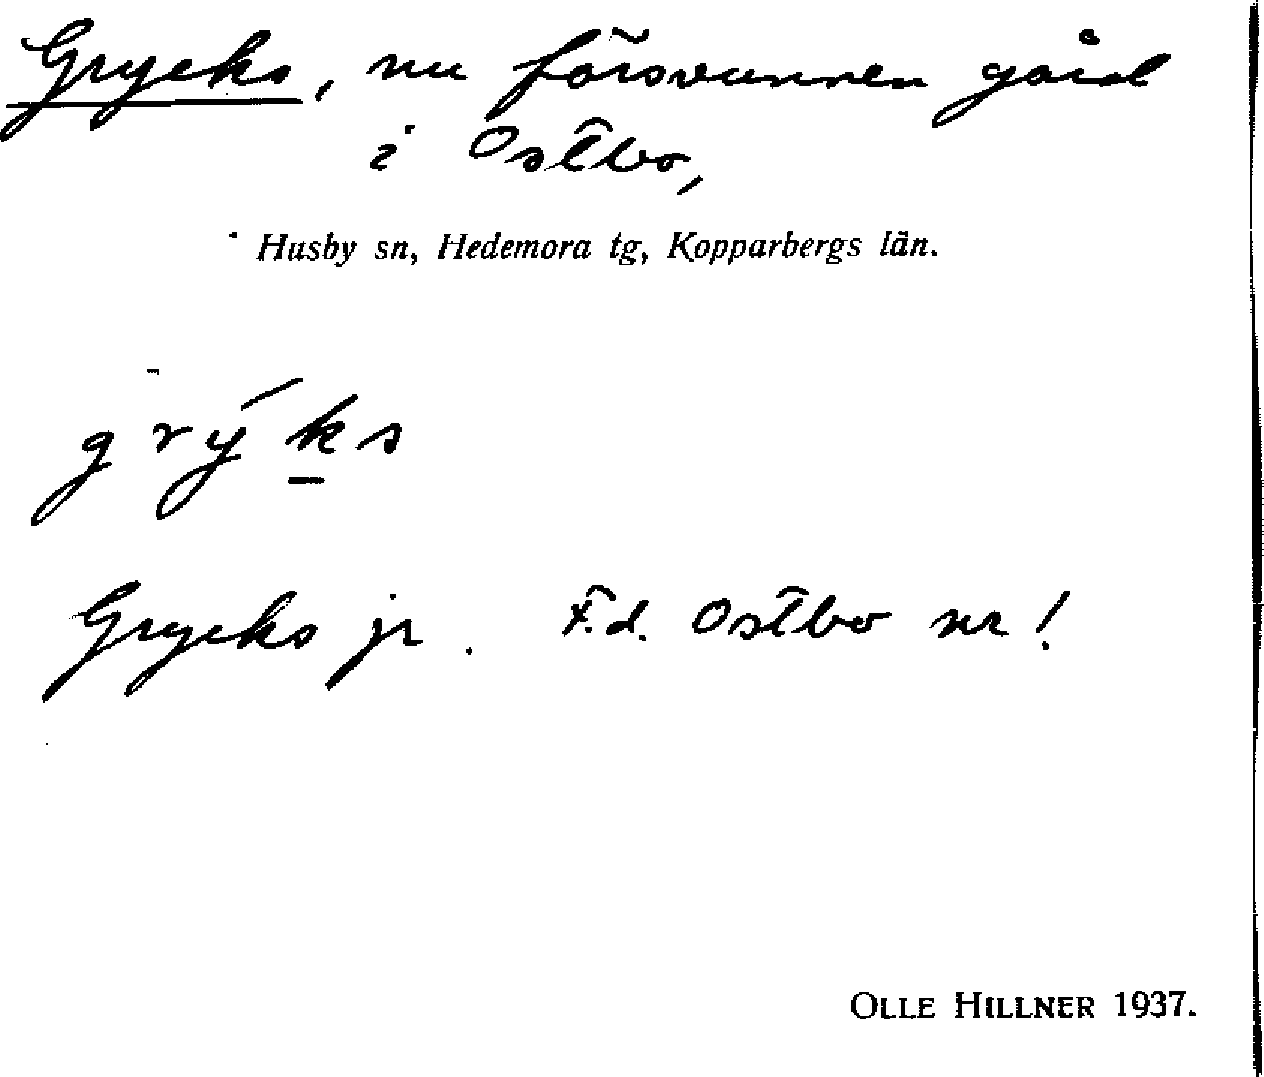 Grycks, nu försvunnen gård
i Östbo,
Husby sn, Hedemora tg, Kopparbergs län.
grýks
Grycks jr. F.d. Östbo nr 1
OLLE HILLNER 1937.